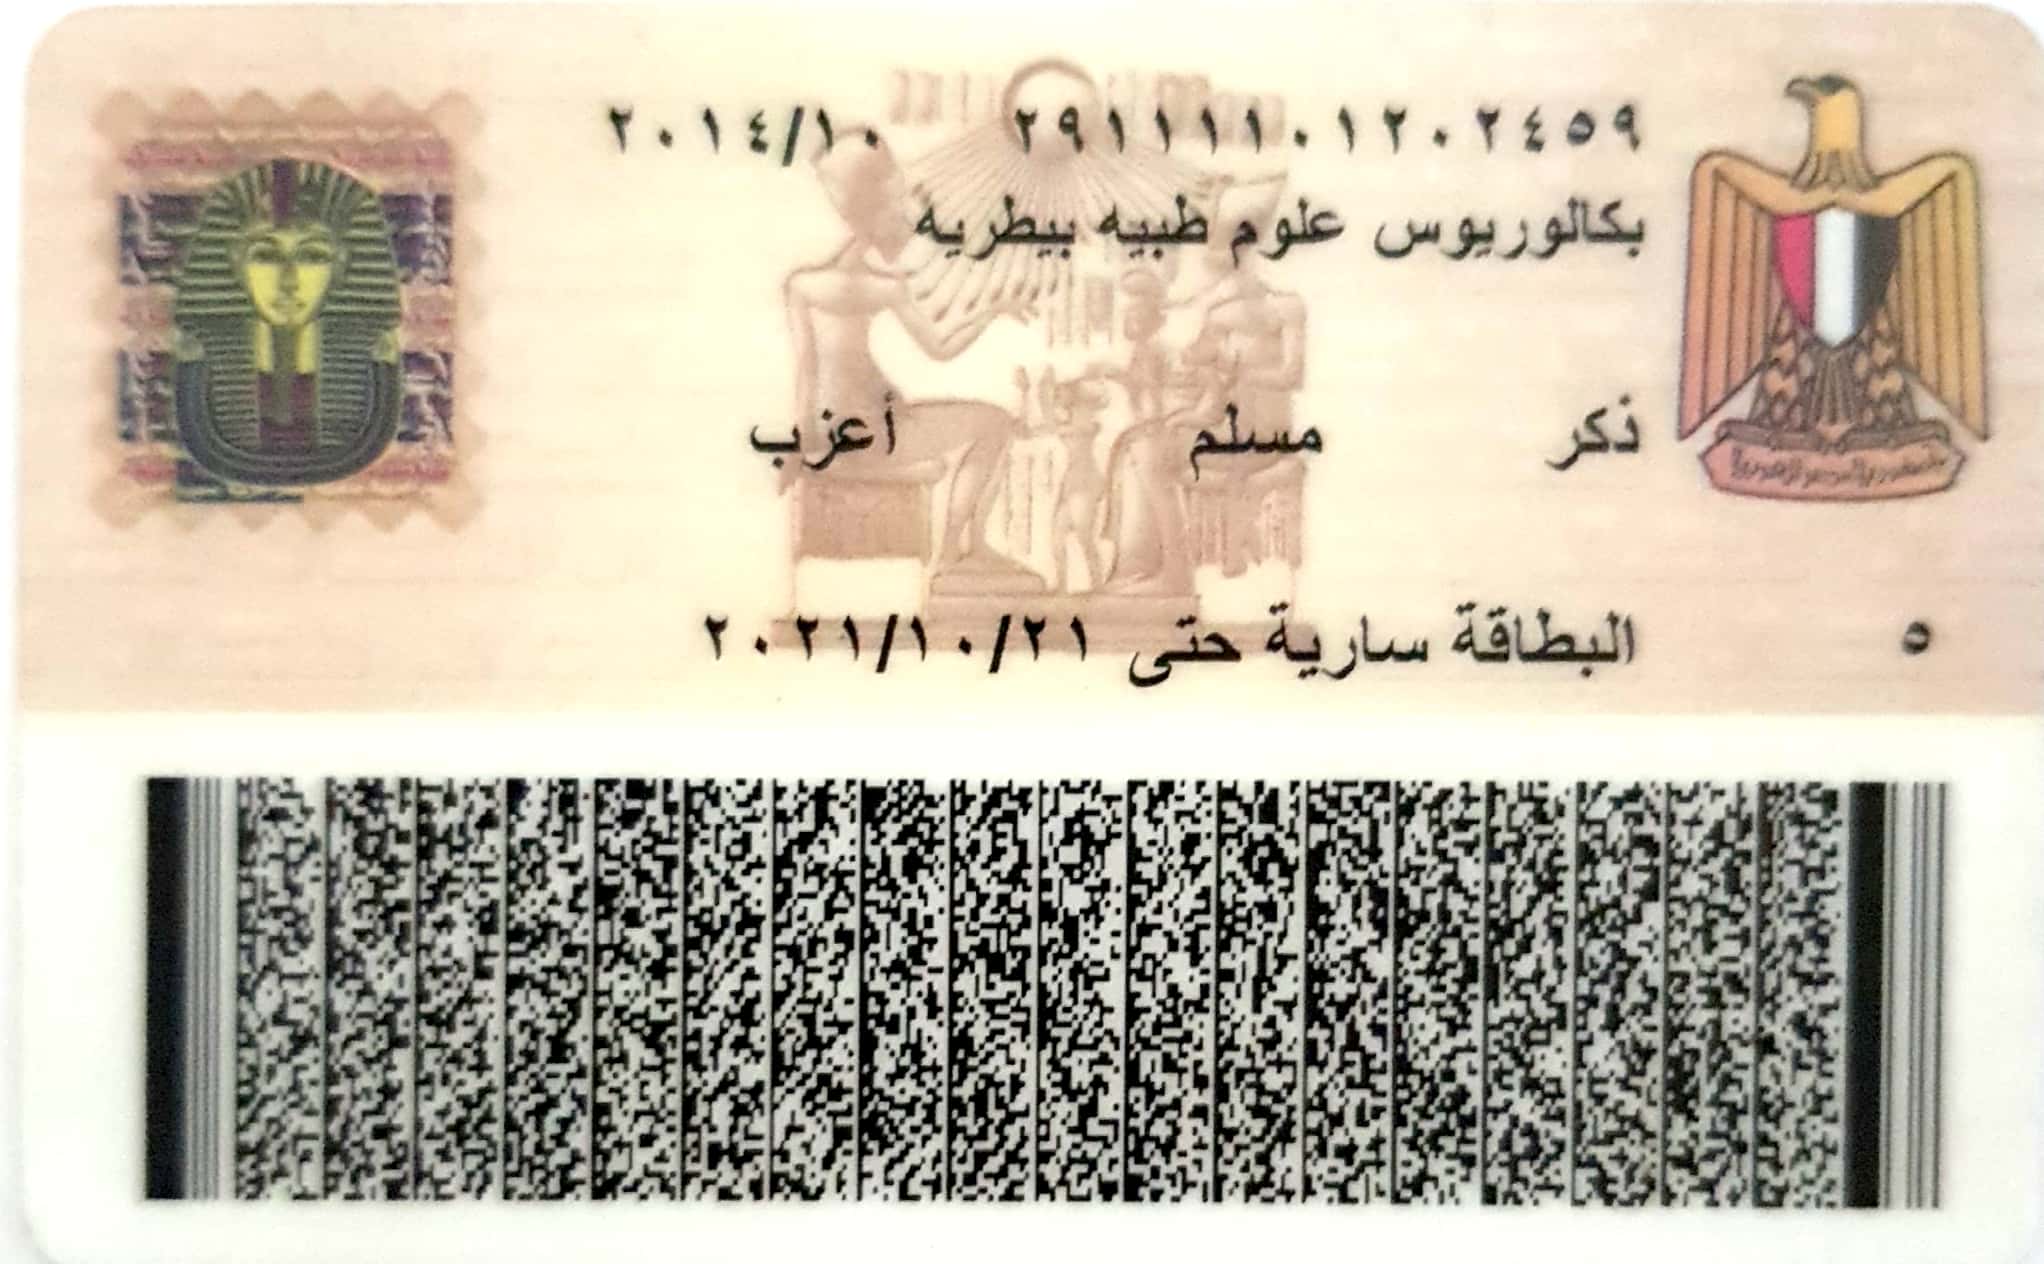 ٢٩١١١١٠١٢٠٢٤٥٩ ٢٠١٤/١٠
بكالوريوس علوم طبيه بيطريه
ذكر مسلم أعزب
البطاقة سارية حتى ٢٠٢١/١٠/٢١
٥